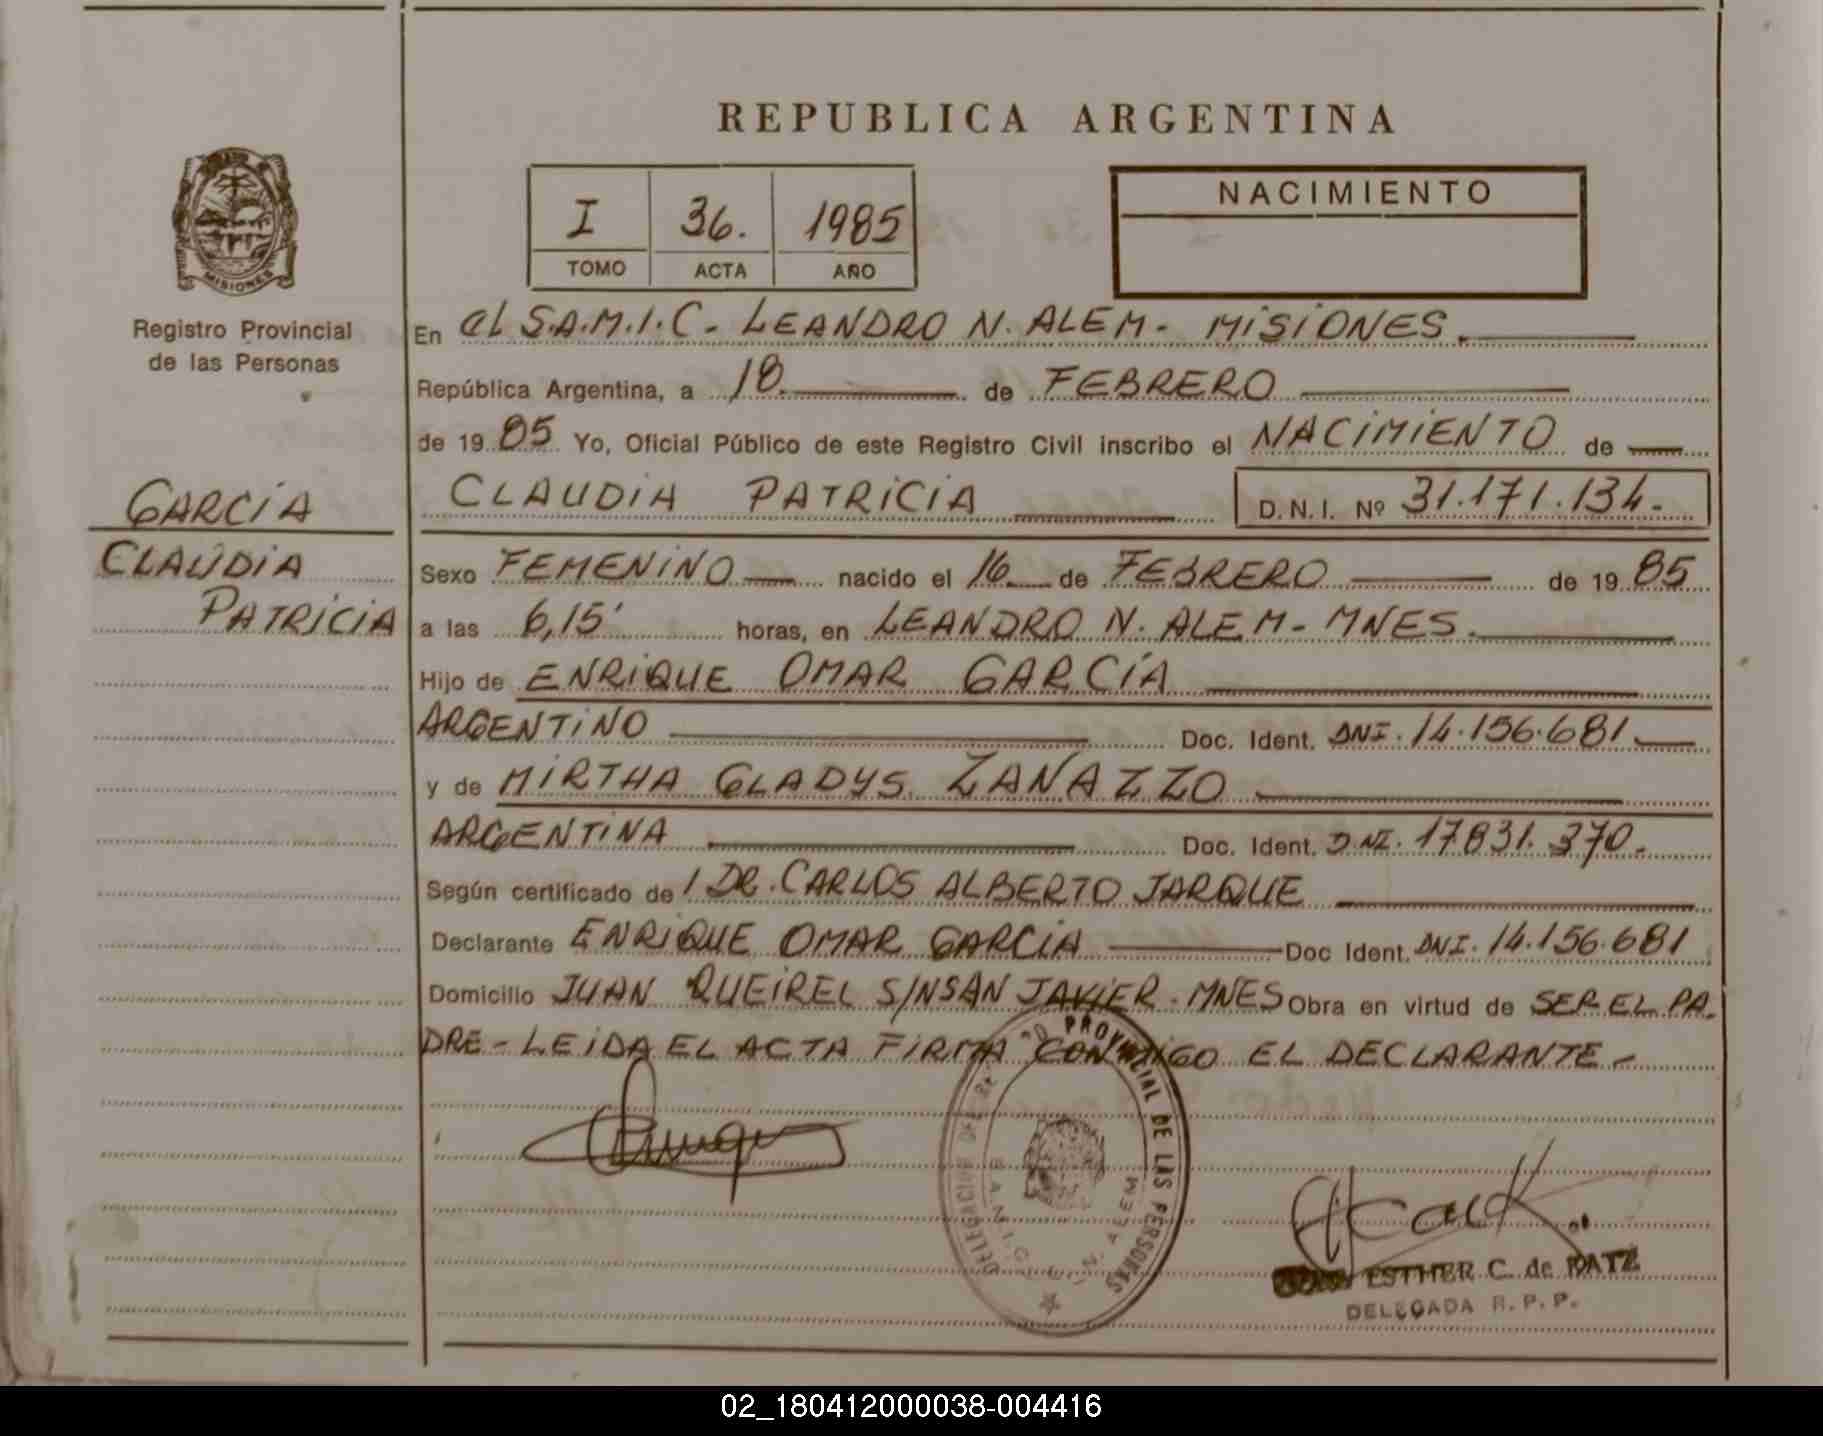 REPUBLICA ARGENTINA
I 36. 1985
TOMO ACTA AÑO
NACIMIENTO
MISIONES
Registro Provincial
de las Personas
GARCÍA
CLAUDIA
PATRICIA
En el S.A.M.I.C. - LEANDRO N. ALEM - MISIONES.
República Argentina, a 18. de FEBRERO
de 19 85 Yo, Oficial Público de este Registro Civil inscribo el NACIMIENTO de
CLAUDIA PATRICIA D.N.I. Nº 31.171.134.-
Sexo FEMENINO nacido el 16 de FEBRERO de 19 85
a las 6,15' horas, en LEANDRO N. ALEM - MNES.
Hijo de ENRIQUE OMAR GARCÍA
ARGENTINO Doc. Ident. DNI. 14.156.681
y de MIRTHA GLADYS ZANAZZO
ARGENTINA Doc. Ident. D.NI. 17.831.370.
Según certificado de / DR. CARLOS ALBERTO JARQUE
Declarante ENRIQUE OMAR GARCÍA Doc Ident. DNI. 14.156.681
Domicilio JUAN QUEIREL S/N SAN JAVIER - MNES Obra en virtud de SER EL PA.
DRE - LEIDA EL ACTA FIRMA CONMIGO EL DECLARANTE -
DELEGACION DEL REG PROVINCIAL DE LAS PERSONAS
S.A.M.I.C. L.N. ALEM
ESTHER C. de RATZ
DELEGADA R.P.P.
02_180412000038-004416